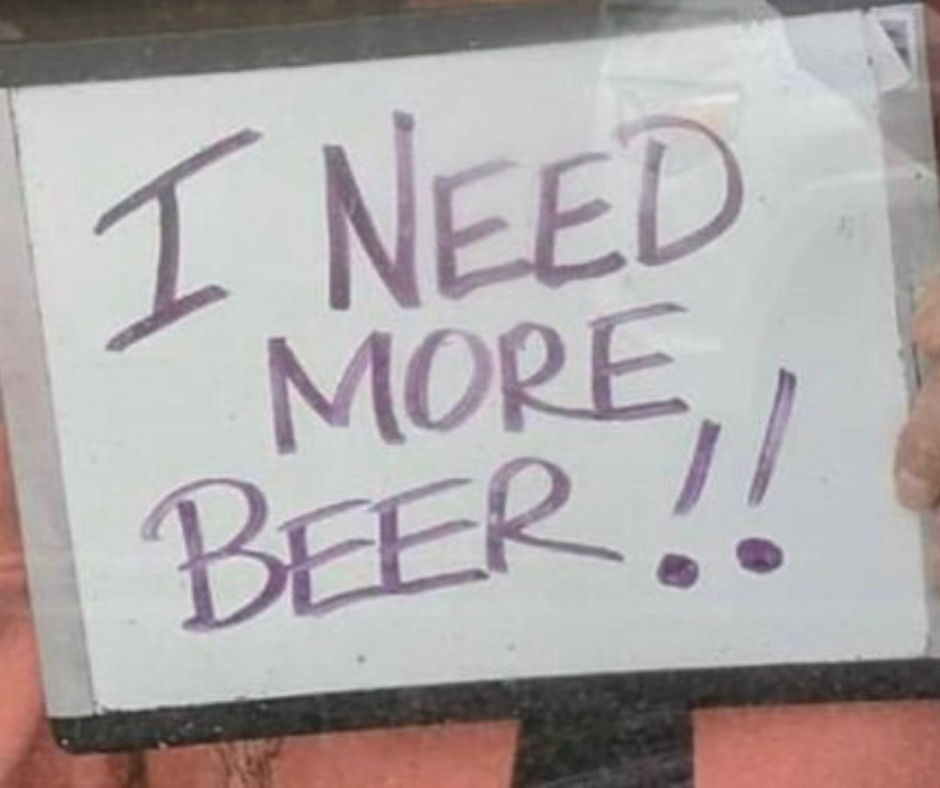 I NEED
MORE
BEER!!